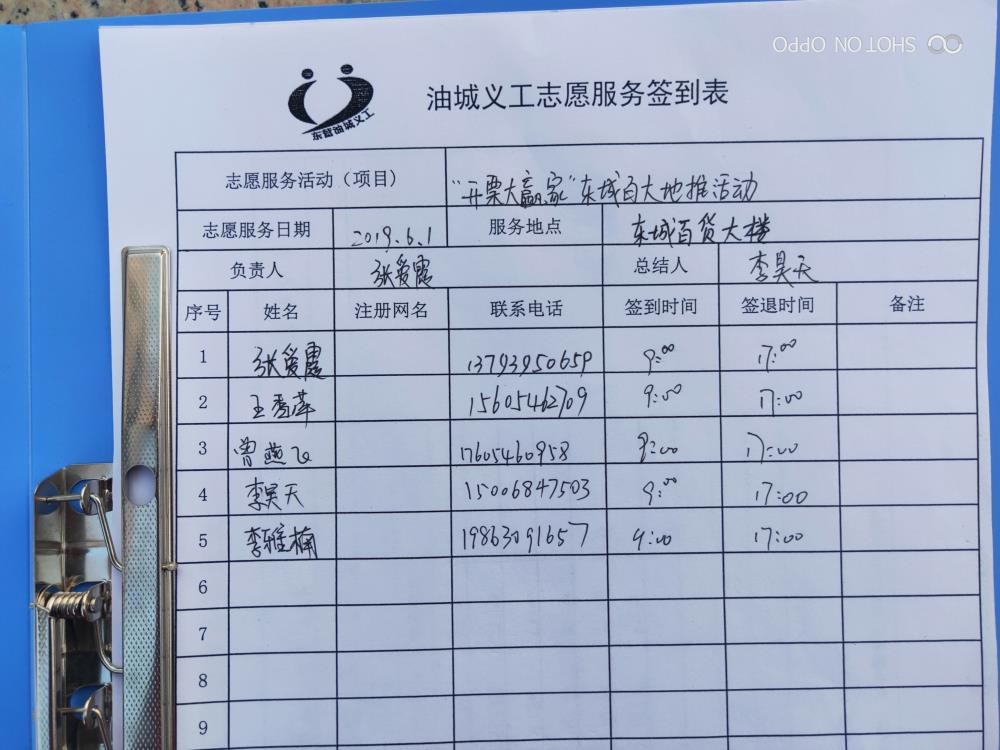 SHOT ON OPPO
东营油城义工
油城义工志愿服务签到表
志愿服务活动（项目） "开票大赢家"东城百大地推活动
志愿服务日期 2019.6.1 服务地点 东城百货大楼
负责人 张爱霞 总结人 李昊天
序号 姓名 注册网名 联系电话 签到时间 签退时间 备注
1 张爱霞 13793950659 9:00 17:00
2 王秀萍 15605462709 9:00 17:00
3 曾燕飞 17605460958 9:00 17:00
4 李昊天 15006847503 9:00 17:00
5 李雅楠 19863091657 9:00 17:00
6
7
8
9